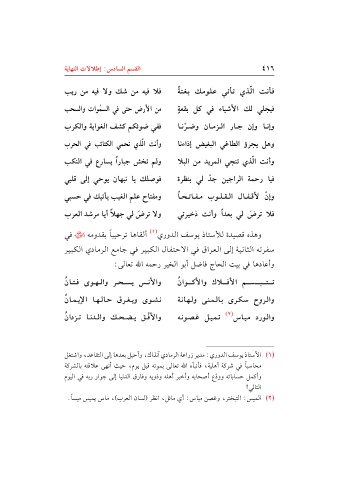 ٤١٦ القسم السادس: إطلالات النهاية
فأنت الّذي تأتي علومك بغتةً فلا فيه من شك ولا فيه من ريب
فيجلي لك الأشياء في كل بقعةٍ من الأرض حتى في السمٰوات والسحب
وإنـا وإن جـار الـزمـان وضـرّنـا ففي ضوئكم كشف الغواية والكرب
وهل يجرؤ الطاغي البغيض إذاءنا وأنت الّذي تحمي الكتائب في الحرب
وأنت الّذي تنجي المريد من البلا ولم تخش جباراً يسارع في النكب
فيا رحمة الراجين جدْ لي بنظرة فوصلك يا نبهان يوحي إلى قلبي
وإنّ لأقـفـال الـقـلـوب مـفـاتـحـاً ومفتاح علم الغيب يأتيك في حسبي
فلا ترضَ لي بعداً وأنت ذخيرتي ولا ترضَ لي جهلاً أيا مرشد العرب
وهذه قصيدة للأستاذ يوسف الدوري(١) ألقاها ترحيباً بقدومه ﷺ في
سفرته الثانية إلى العراق في الاحتفال الكبير في جامع الرمادي الكبير
وأعادها في بيت الحاج فاضل أبو الخير رحمه الله تعالى:
تـتـبـسـم الأفـلاك والأكـوانُ والأنس يسحر والهوى فتانُ
والروح سكرى بالمنى ولهانة نشوى ويغرق حالها الإيمانُ
والورد مياس(٢) تميل غصونه والأفق يضحك والدنا تزدانُ
(١) الأستاذ يوسف الدوري: مدير زراعة الرمادي آنذاك، وأحيل بعدها إلى التقاعد، واشتغل
محاسباً في شركة أهلية، فأنبأه الله تعالى بموته قبل يوم، حيث أنهى علاقته بالشركة
وأكمل حساباته وودّع أصحابه وأخبر أهله وذويه وفارق الدنيا إلى جوار ربه في اليوم
التالي!
(٢) الميس: التبختر، وغصن مياس: أي مائل، انظر (لسان العرب)، ماس يميس ميساً.